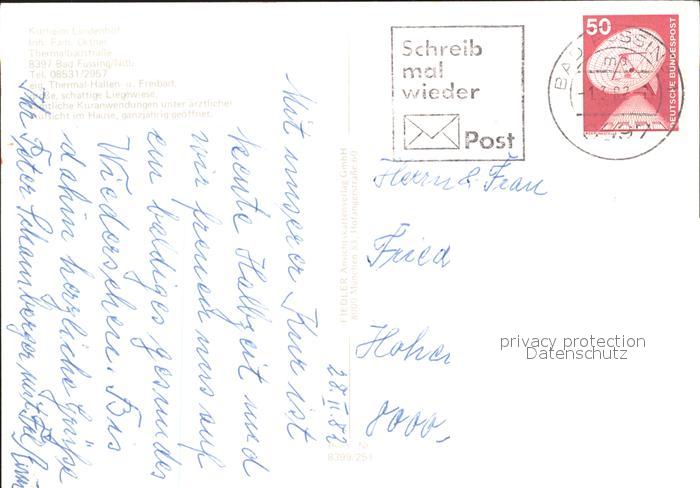 Kurheim Lindenhof
Inh. Fam. Ortner
Thermalbadstraße
8397 Bad Füssing/Ndb.
Tel. 08531/2957
eig. Thermal-Hallen- u. Freibad,
große, schattige Liegewiese,
sämtliche Kuranwendungen unter ärztlicher
Aufsicht im Hause, ganzjährig geöffnet.
Schreib
mal
wieder
Post
50
DEUTSCHE BUNDESPOST
BAD FÜSSING
8397
Mit unserer Kur ist
heute Halbzeit und
wir freuen uns auf
ein baldiges gesundes
Wiedersehen. Bis
dahin herzliche Grüße
Ihr Peter Schamberger mit
28.II.82
FIEDLER Ansichtskartenverlag GmbH
8000 München 83, Hofangerstraße 60
8399/251
Herrn & Frau
Fried
Hohen
8000
privacy protection
Datenschutz